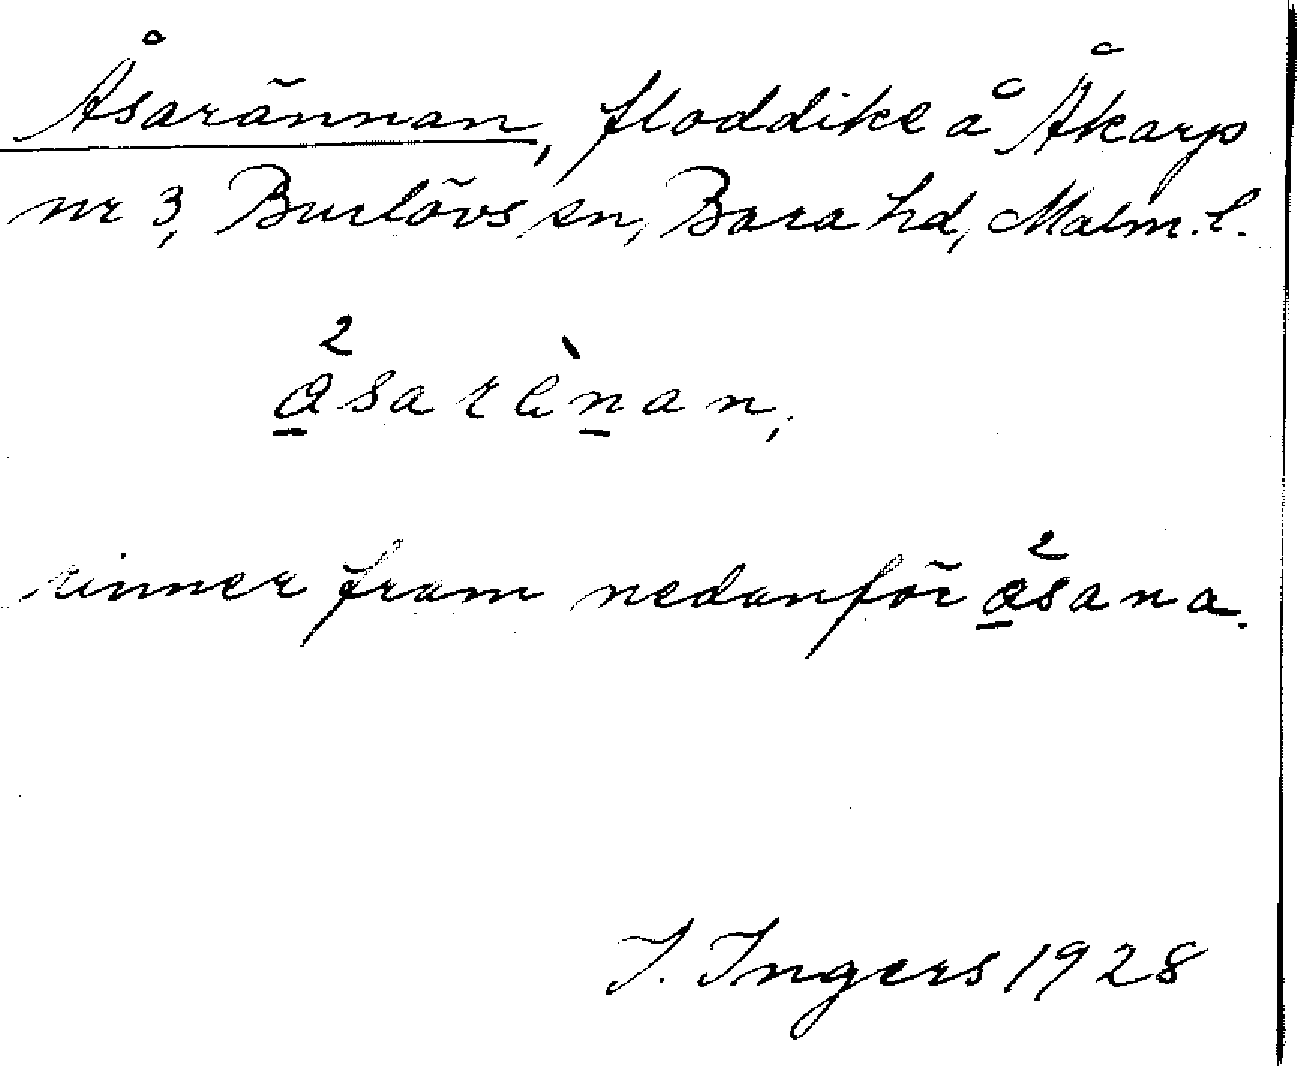 Åsarännan, floddike å Åkarp
nr 3, Burlövs sn, Bara hd, Malm. l.
a̲²sarèn̲an,
rinner fram nedanför a̲²sana.
I. Ingers 1928